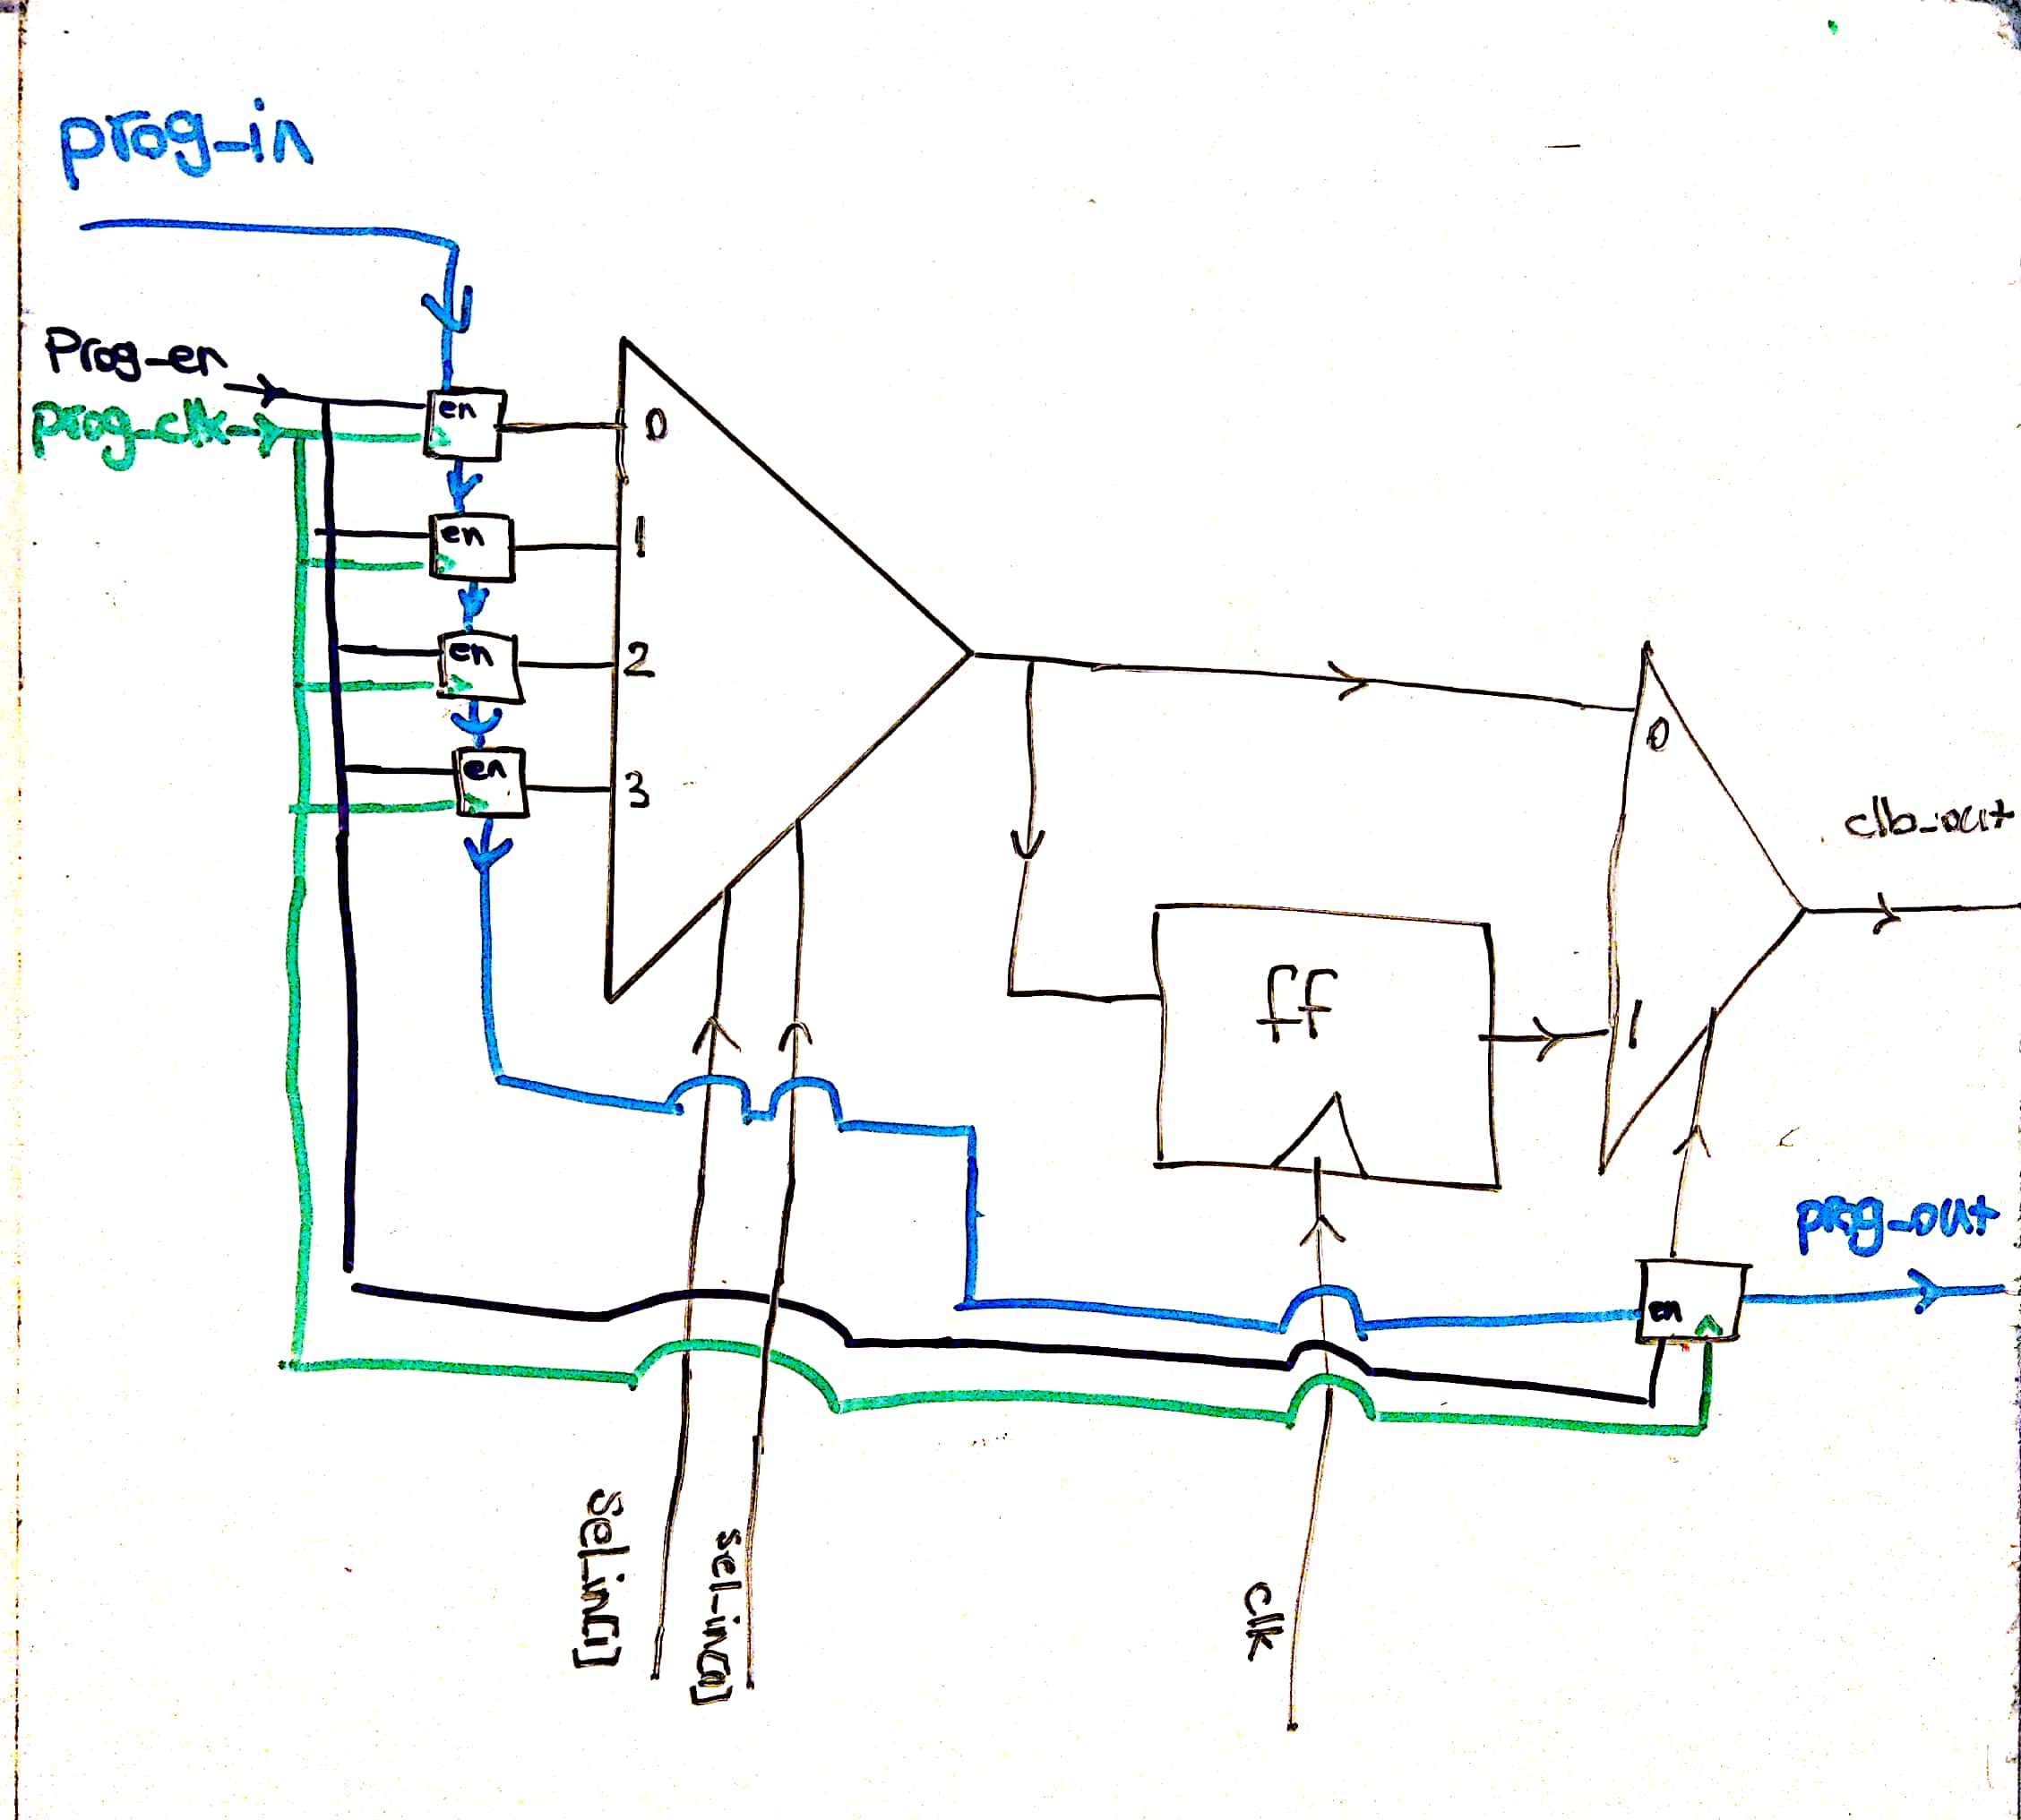 prog_in
Prog_en
prog_clk
en
0
en
1
en
2
en
3
0
clb_out
ff
1
prog_out
en
sel_in[1]
sel_in[0]
clk